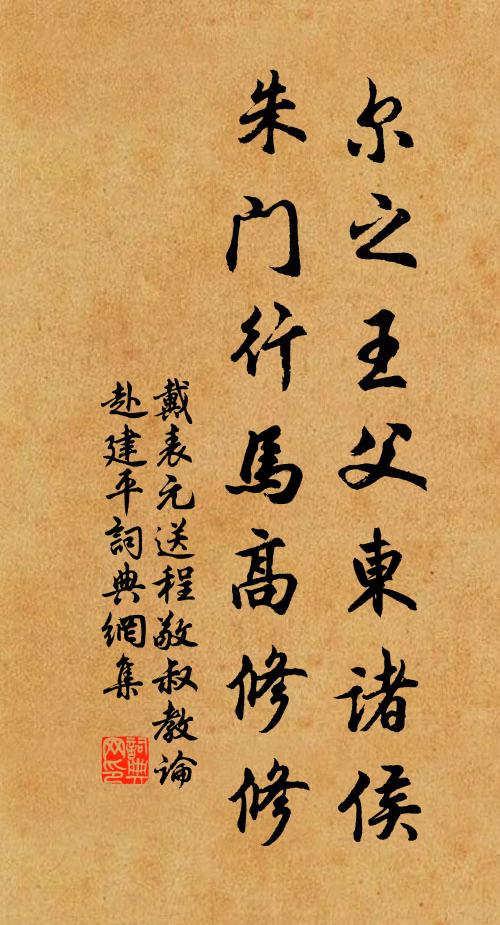 尔之王父東諸侯
朱门行馬髙修修
戴表元送程敬叔教論
赴建平詞典網集
詞典
网印